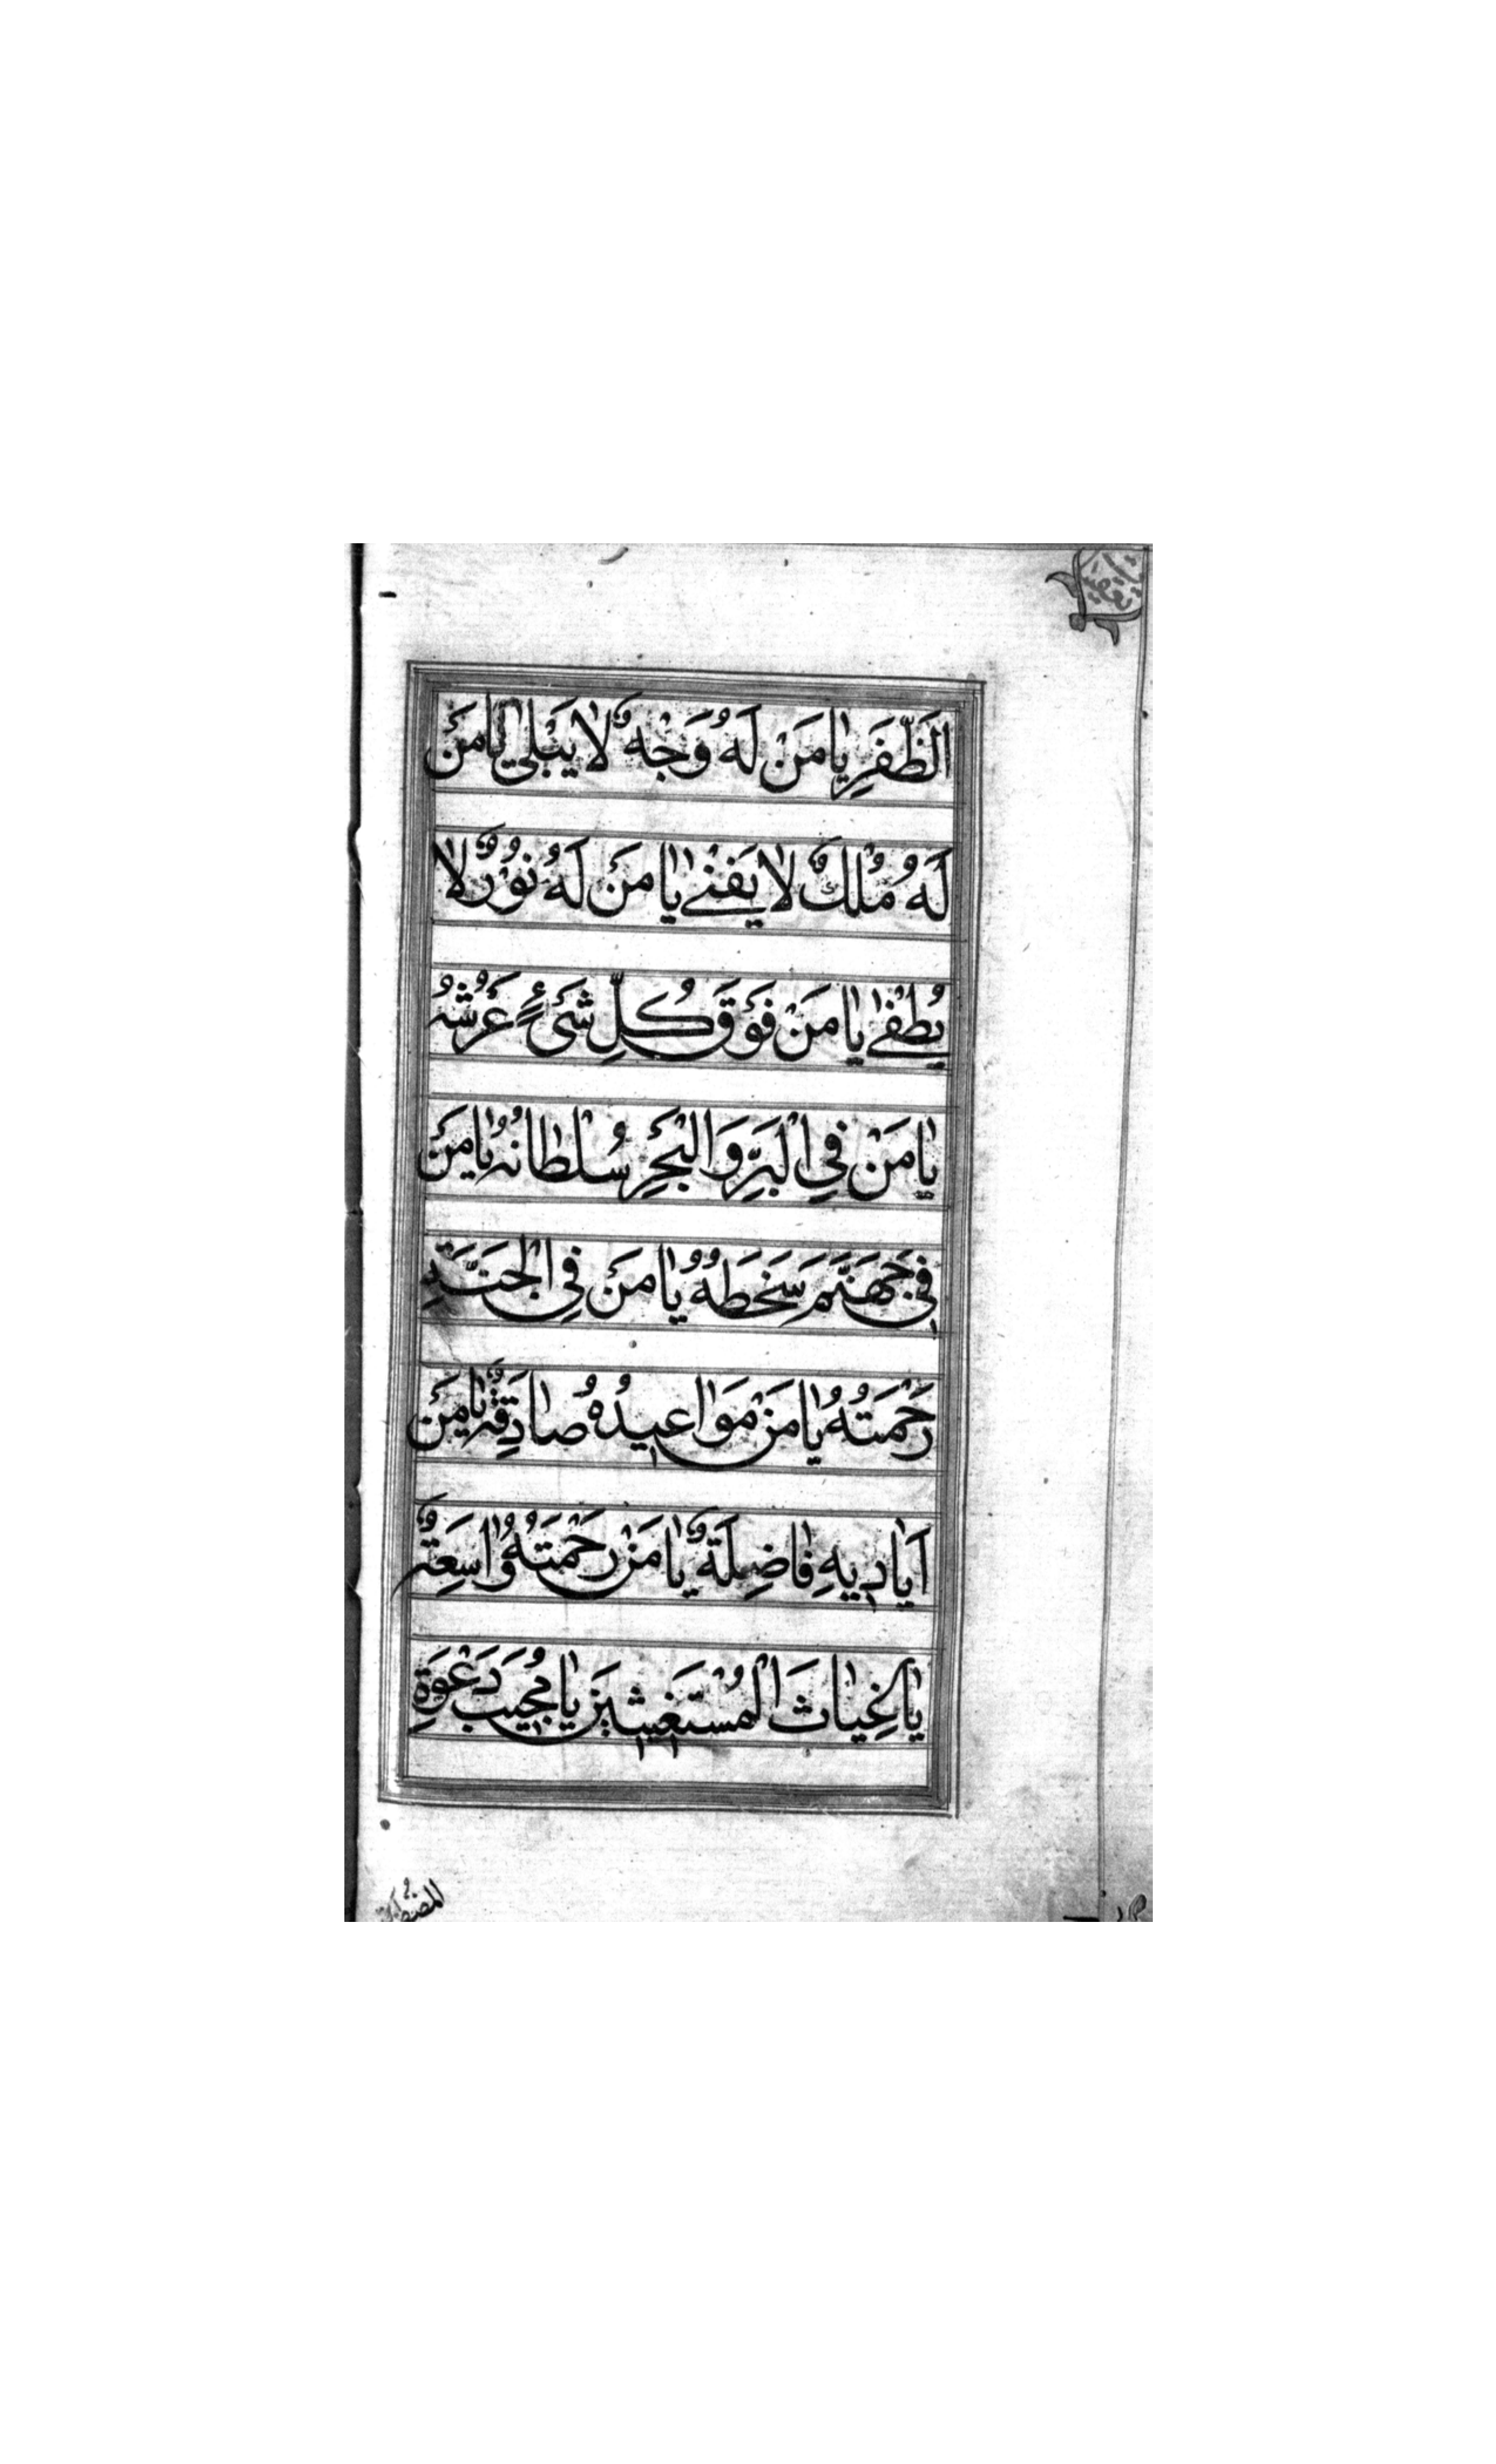 اَلظَّفَرِ يٰا مَنْ لَهُ وَجْهٌ لٰا يَبْلٰى يٰا مَنْ
لَهُ مُلْكٌ لٰا يَفْنٰى يٰا مَنْ لَهُ نُوْرٌ لٰا
يُطْفٰى يٰا مَنْ فَوْقَ كُلِّ شَىْءٍ عَرْشُهُ
يٰا مَنْ فِي الْبَرِّ وَالْبَحْرِ سُلْطٰانُهُ يٰا مَنْ
فِى جَهَنَّمَ سَخَطُهُ يٰا مَنْ فِى الْجَنَّةِ
رَحْمَتُهُ يٰا مَنْ مَوٰاعِيدُهُ صٰادِقَةٌ يٰا مَنْ
اَيٰادِيهِ فٰاضِلَةٌ يٰا مَنْ رَحْمَتُهُ وٰاسِعَةٌ
يٰا غِيٰاثَ الْمُسْتَغيثينَ يٰا مُجيبَ دَعْوَةِ